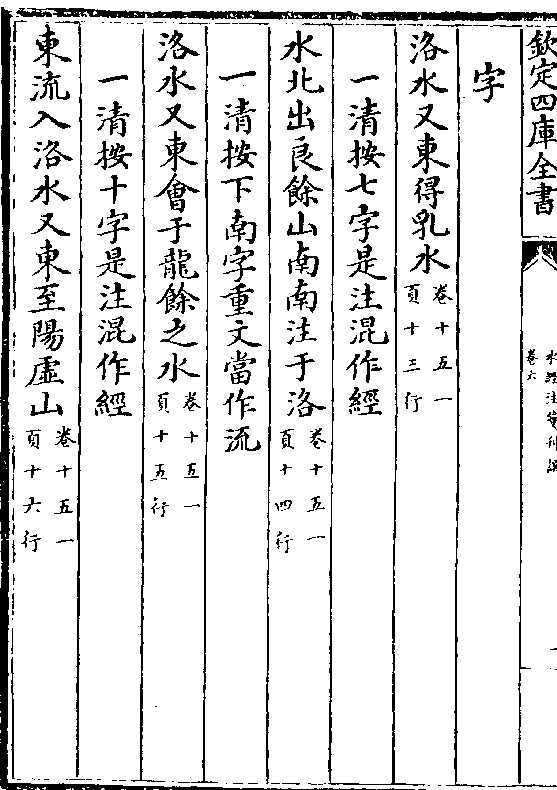 欽定四庫全書
水經注箋刊誤
卷六
字
洛水又東得乳水卷十五一頁十三行
一清按七字是注混作經
水北出良餘山南南注于洛卷十五一頁十四行
一清按下南字重文當作流
洛水又東會于龍餘之水卷十五一頁十五行
一清按十字是注混作經
東流入洛水又東至陽虛山卷十五一頁十六行